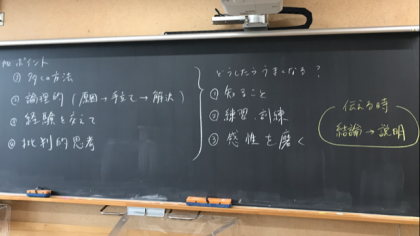 ポイント
① 多くの方法
② 論理的（原因→手立て→解決）
③ 経験を交えて
④ 批判的思考
どうしたらうまくなる？
① 知ること
② 練習・訓練
③ 感性を磨く
伝える時
結論→説明